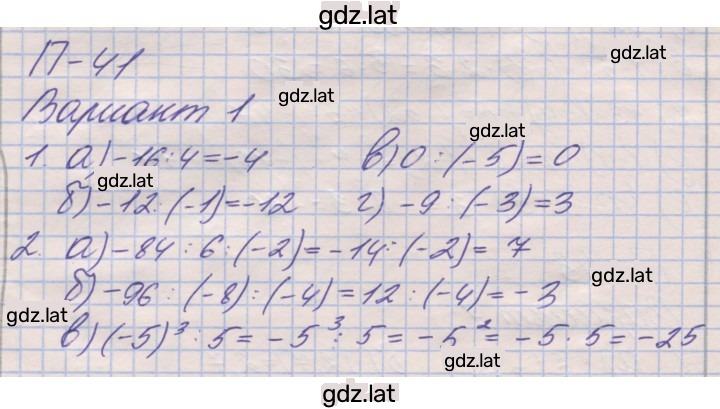 gdz.lat
П-41 gdz.lat
Вариант 1 gdz.lat
gdz.lat
1. а) -16:4=-4 в) 0:(-5)=0
gdz.lat
б) -12:(-1)=-12 г) -9:(-3)=3
2. а) -84:6:(-2)=-14:(-2)=7
gdz.lat
б) -96:(-8):(-4)=12:(-4)=-3
gdz.lat
в) (-5)³:5=-5³:5=-5²=-5·5=-25
gdz.lat
gdz.lat